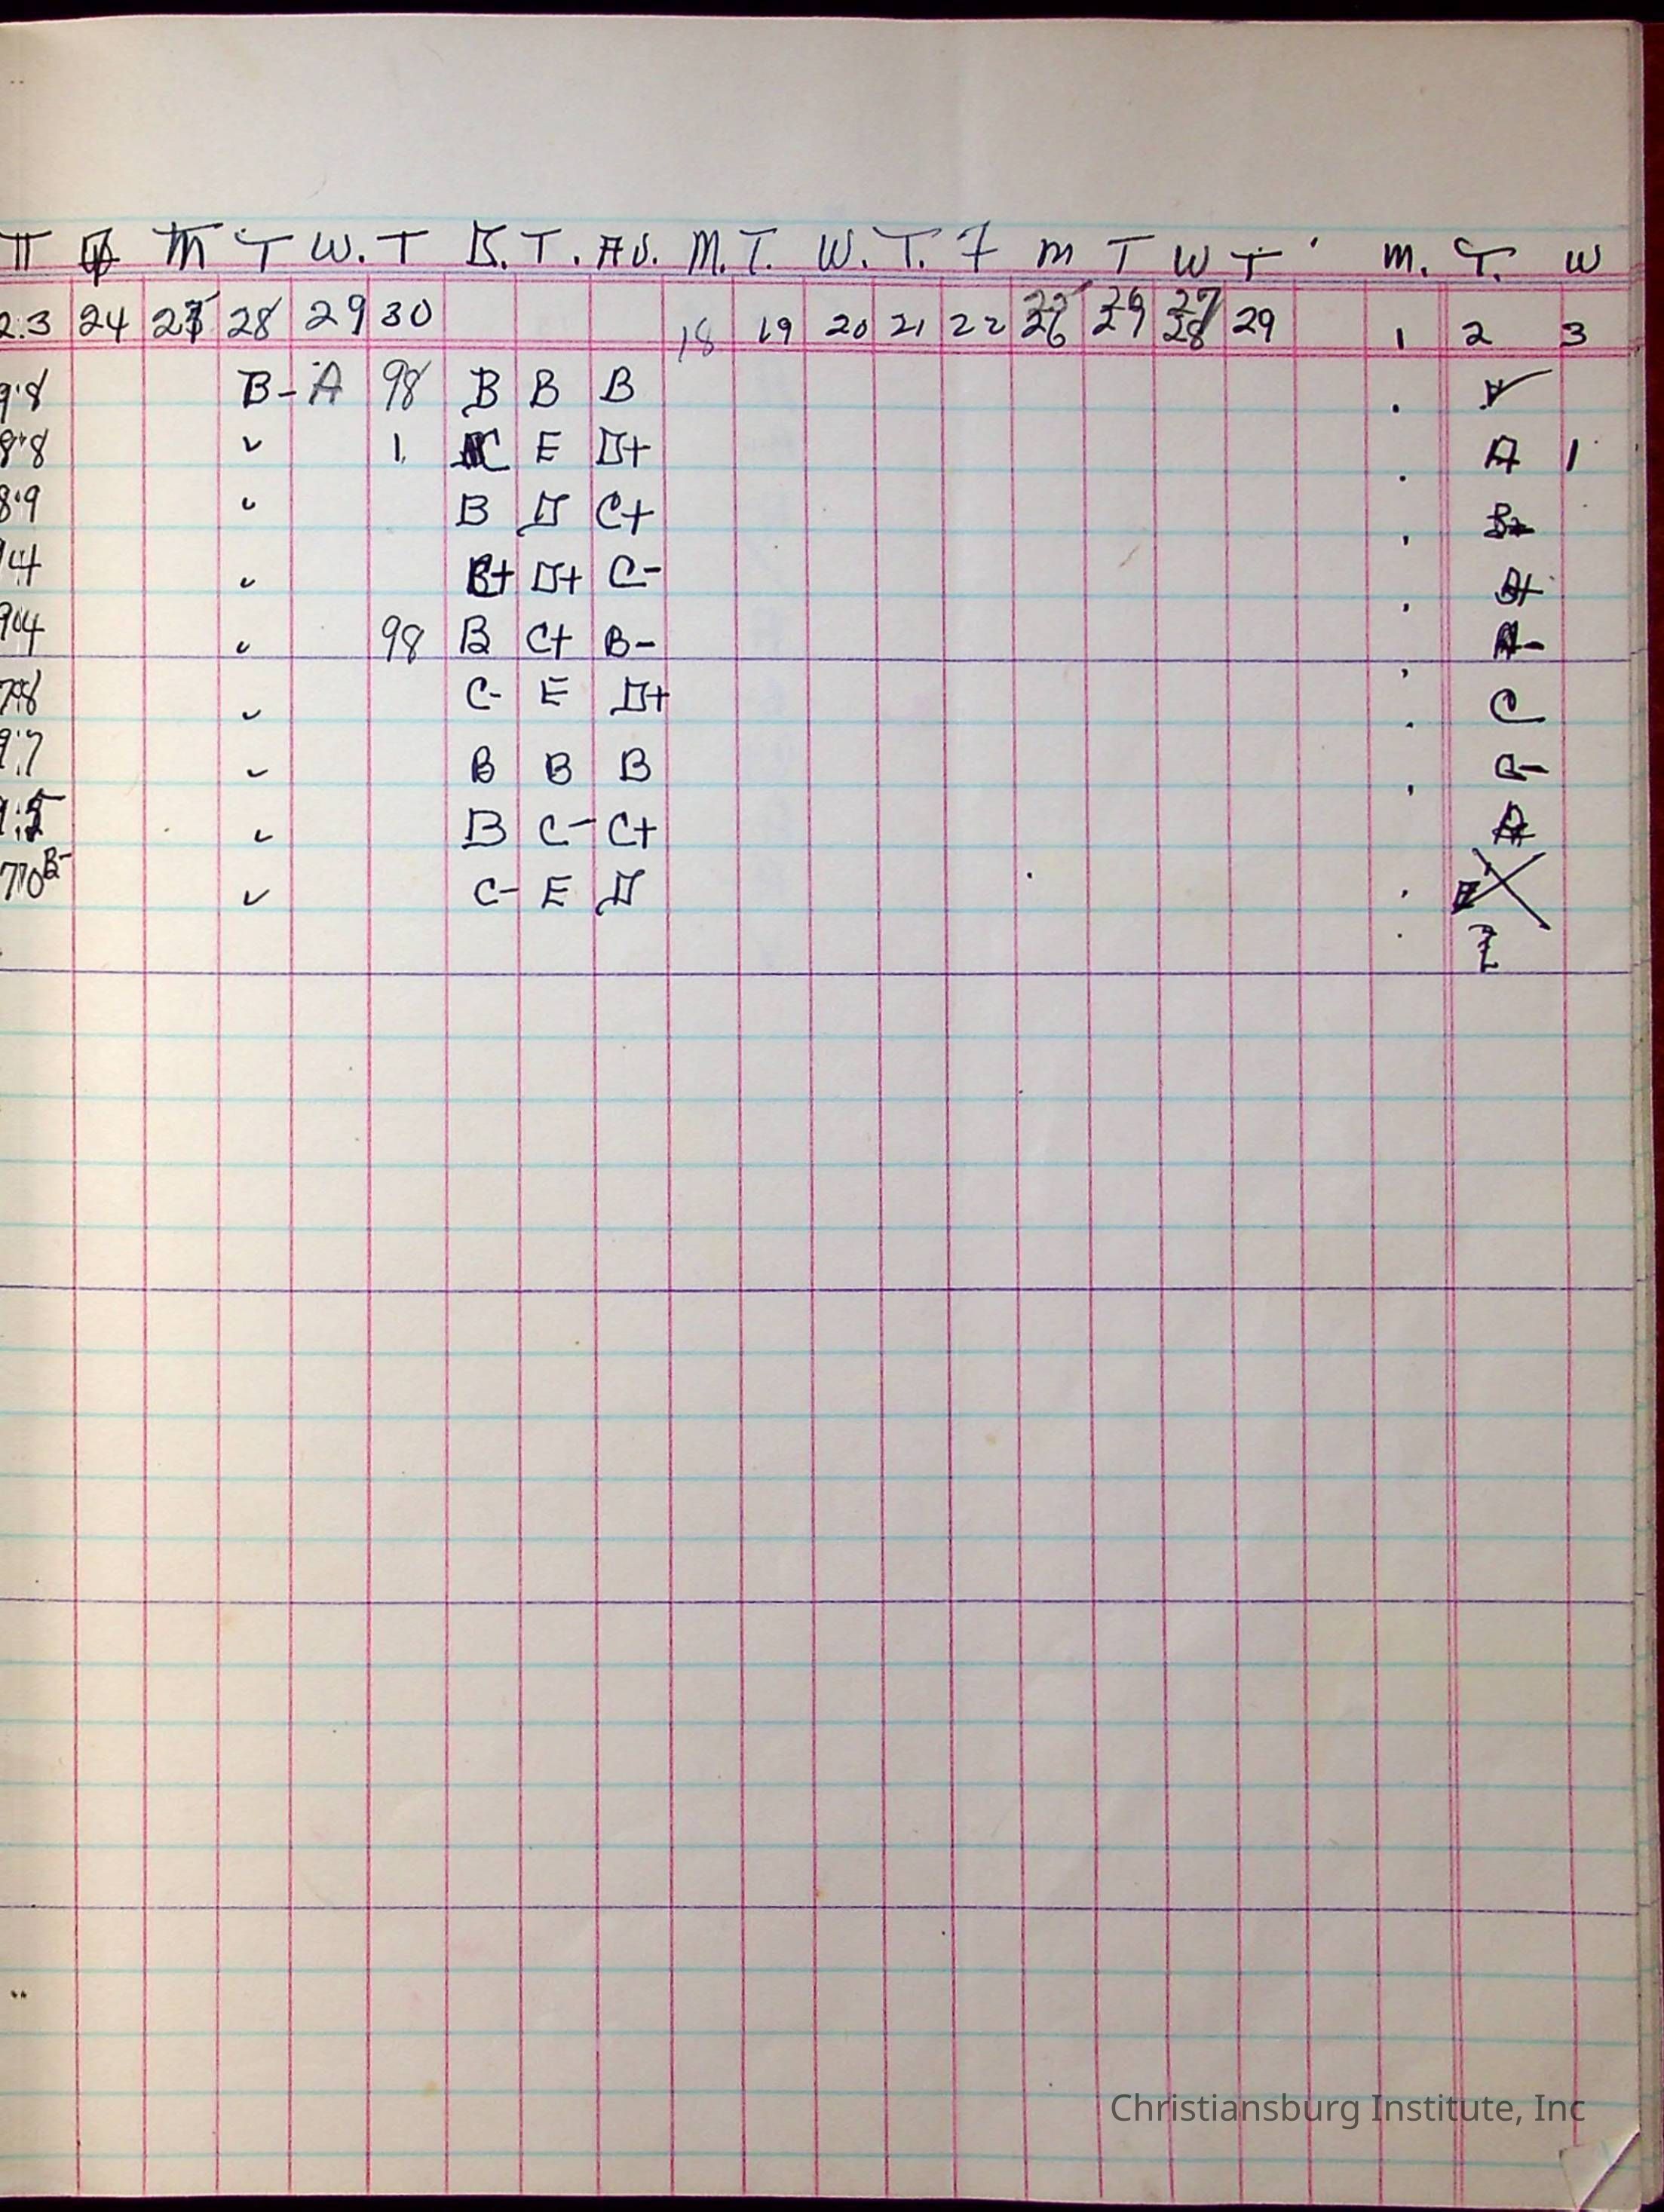 T F M T W. T D. T. Av. M. T. W. T. F M T W T M. T. W
23 24 27 28 29 30 18 19 20 21 22 25 26 26 29 27 28 29 1 2 3
98 B- A 98 B B B
88 ✓ 1 C E D+ A 1
89 ✓ B D C+ B+
✓ B+ D+ C- A+
94 ✓ 98 B C+ B- A-
78 ✓ C- E D+ C
97 ✓ B B B
✓ B C- C+ A
770 B- ✓ C- E D
Christiansburg Institute, Inc